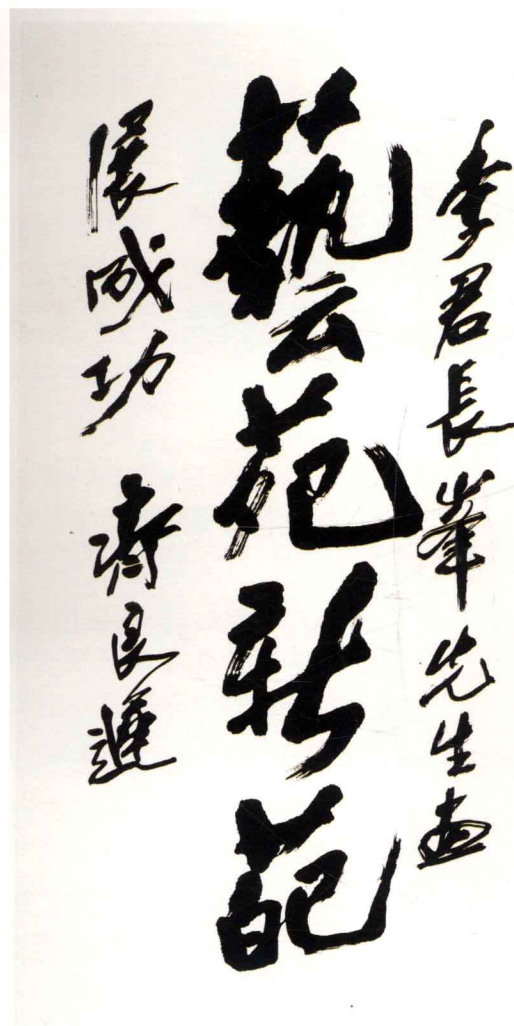 李君長峯先生画
藝苑新葩
展成功 蔣良運